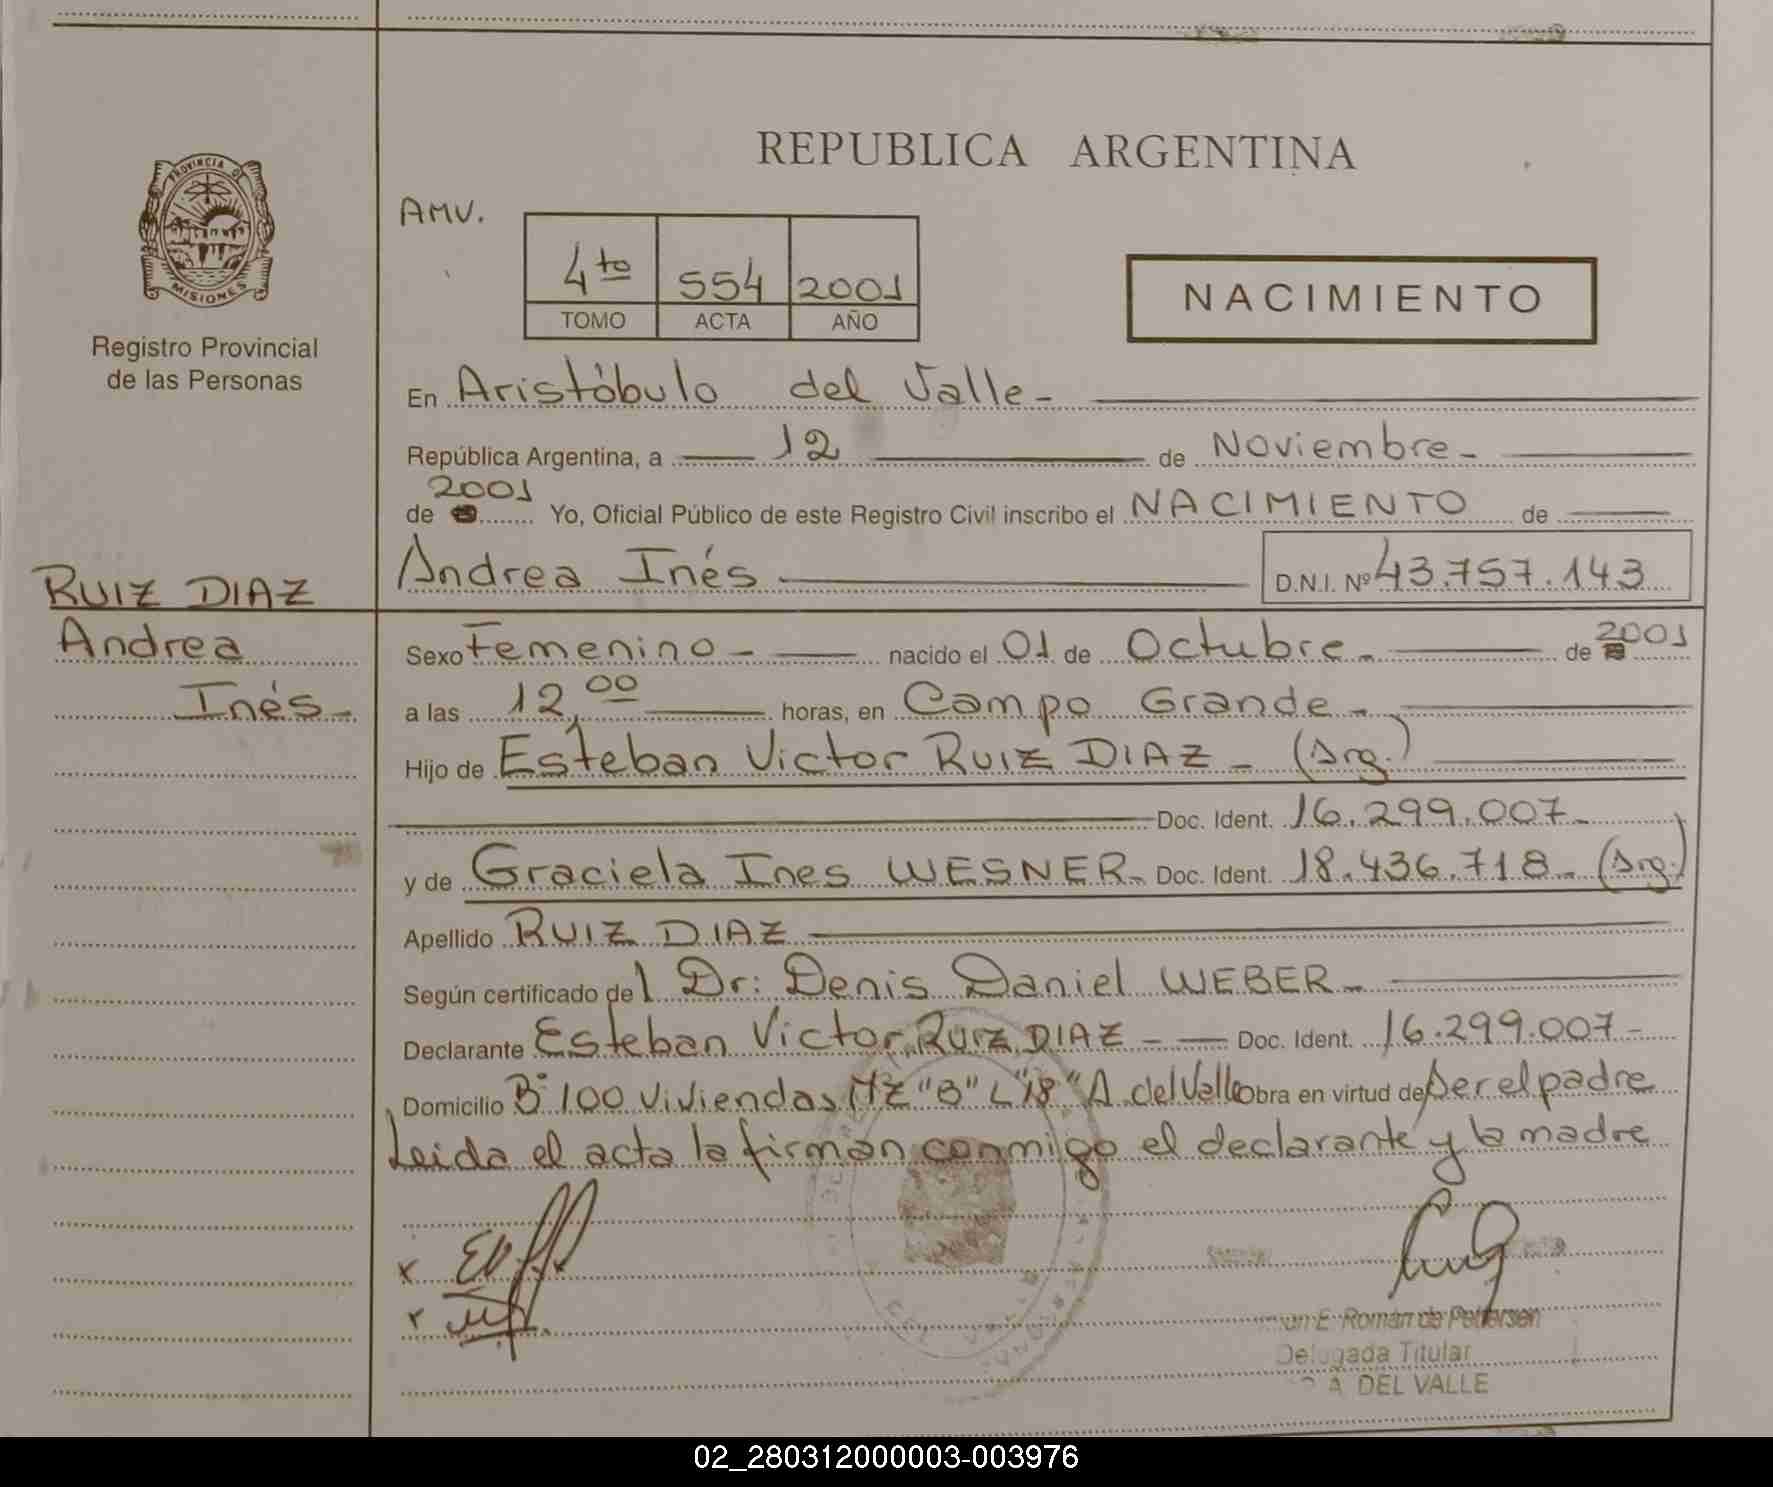 REPUBLICA ARGENTINA
PROVINCIA DE
MISIONES
Registro Provincial
de las Personas
AMV.
4to 554 2001
TOMO ACTA AÑO
NACIMIENTO
En Aristóbulo del Valle-
República Argentina, a 12 de Noviembre-
2001
de Yo, Oficial Público de este Registro Civil inscribo el NACIMIENTO de
Andrea Inés D.N.I. Nº 43.757.143
RUIZ DIAZ
Andrea
Inés-
Sexo Femenino- nacido el 01 de Octubre- de 2001
a las 12,00 horas, en Campo Grande-
Hijo de Esteban Victor RUIZ DIAZ- (Arg.)
Doc. Ident. 16.299.007-
y de Graciela Ines WESNER- Doc. Ident. 18.436.718- (Arg.)
Apellido RUIZ DIAZ
Según certificado del Dr: Denis Daniel WEBER-
Declarante Esteban Victor RUIZ DIAZ- Doc. Ident. 16.299.007-
Domicilio Bº 100 Viviendas MZ "B" L "18" A. del Valle Obra en virtud de Ser el padre
Leida el acta la firman conmigo el declarante y la madre
E. Román de Pettersen
Delegada Titular
A. DEL VALLE
02_280312000003-003976